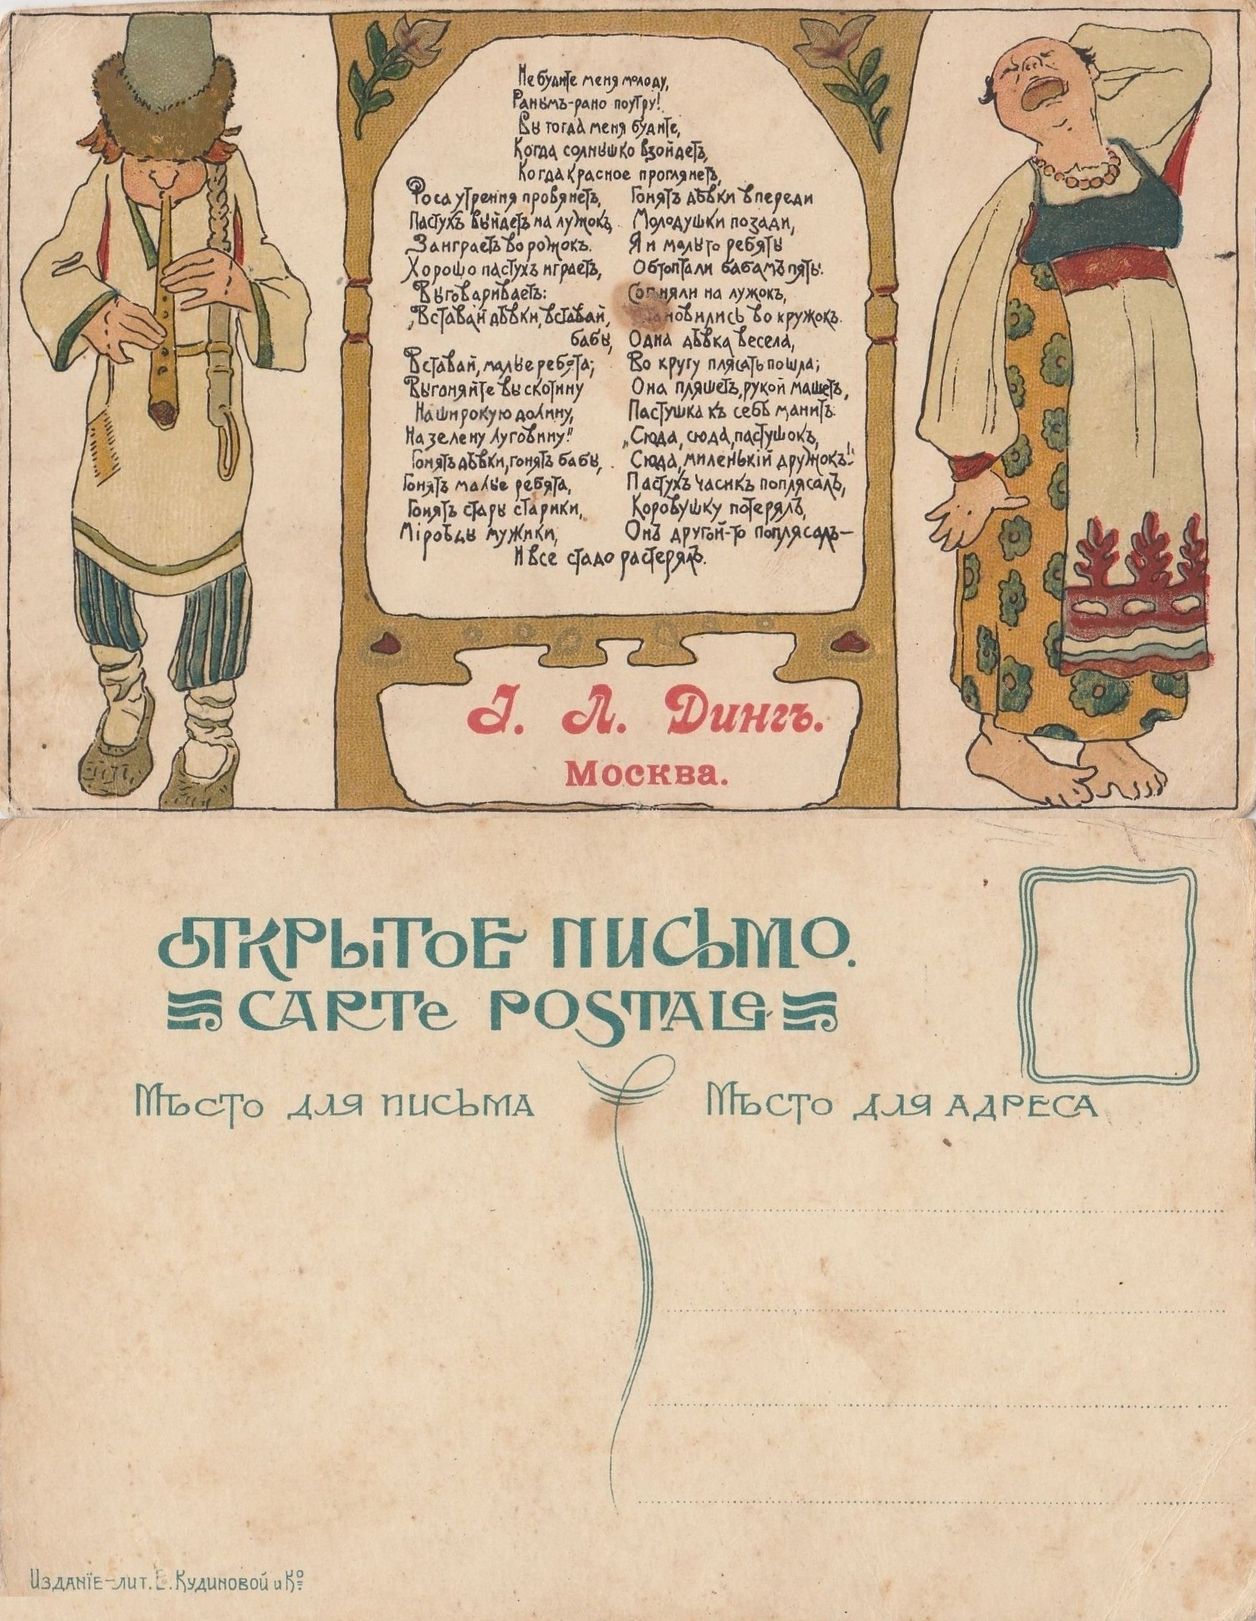 Не будите меня молоду,
Раным-рано поутру!
Вы тогда меня будите,
Когда солнышко взойдетъ,
Когда красное проглянетъ,
Роса утрення провянетъ,
Пастухъ выйдетъ на лужокъ,
Заиграетъ во рожокъ.
Хорошо пастухъ играетъ,
Выговариваетъ:
„Вставай дѣвки, вставай,
бабы,
Вставай, малые ребята;
Выгоняйте вы скотину
На широкую долину,
На зелену луговину!"
Гонятъ дѣвки, гонятъ бабы,
Гонятъ малые ребята,
Гонятъ стары старики,
Міроѣды мужики,
Гонятъ дѣвки впереди
Молодушки позади,
А и малы то ребяты
Обтоптали бабамъ пяты.
Согняли на лужокъ,
становились во кружокъ.
Одна дѣвка весела,
Во кругу плясать пошла;
Она пляшетъ, рукой машетъ,
Пастушка къ себѣ манитъ:
„Сюда, сюда, пастушокъ,
Сюда, миленькій дружокъ!"
Пастухъ часикъ поплясалъ,
Коровушку потерялъ,
Онъ другой-то поплясалъ—
И все стадо растерялъ.
І. Л. Дингъ.
Москва.
Открытое письмо.
Carte postale
Мѣсто для письма
Мѣсто для адреса
Изданіе-лит. Е. Кудиновой и Ко